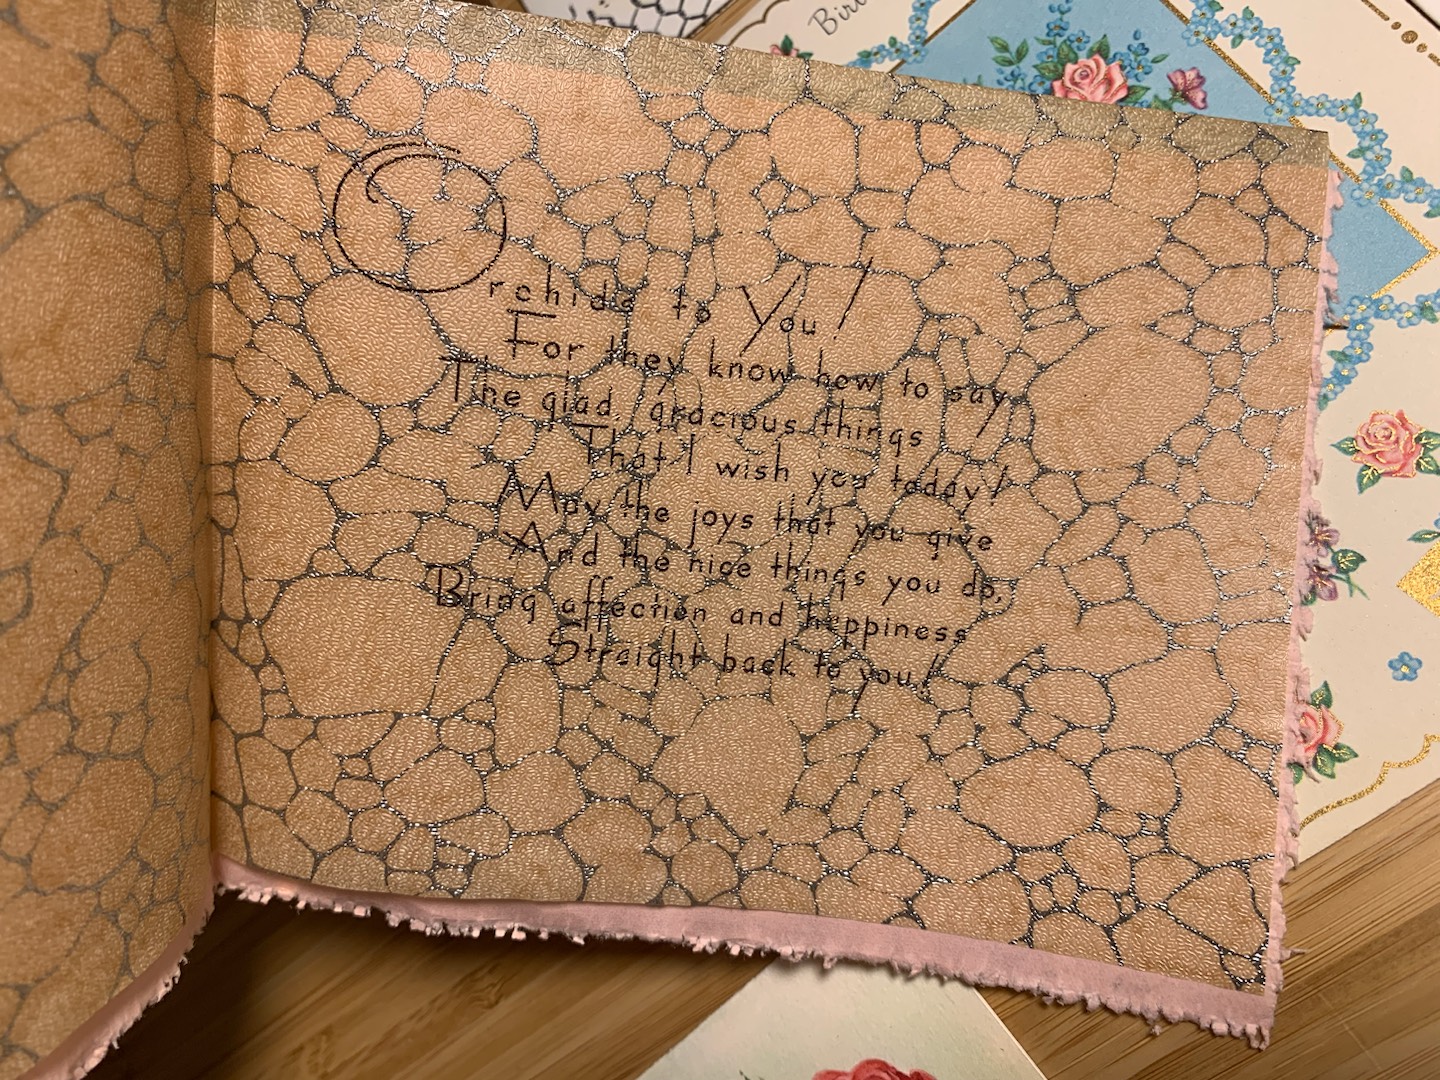 Orchids to You!
For they know how to say
The glad, gracious things
That I wish you today!
May the joys that you give
And the nice things you do,
Bring affection and happiness
Straight back to you!